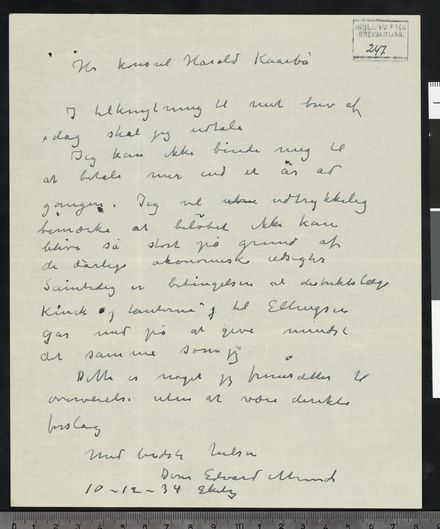 BREVSAMLING.
247
Hr konsul Harald Kaarbö
I tilknytning til mit brev af
idag skal jeg udtale
Jeg kan ikke binde mig til
at betale mer end et år ad
gangen. Jeg vil udtrykkelig
bemærke at beløbet ikke kan
blive så stort på grund af
de dårlige økonomiske udsigter
Samtidig er betingelsen at distriktslæge
Kinck og til Ellingsen
går med på at give mindst
det samme som jeg
Dette er noget jeg fremsætter til
overveielse uten at være direkte
forslag
Med bedste hilsen
Deres Edvard Munch
10-12-34 Ekely